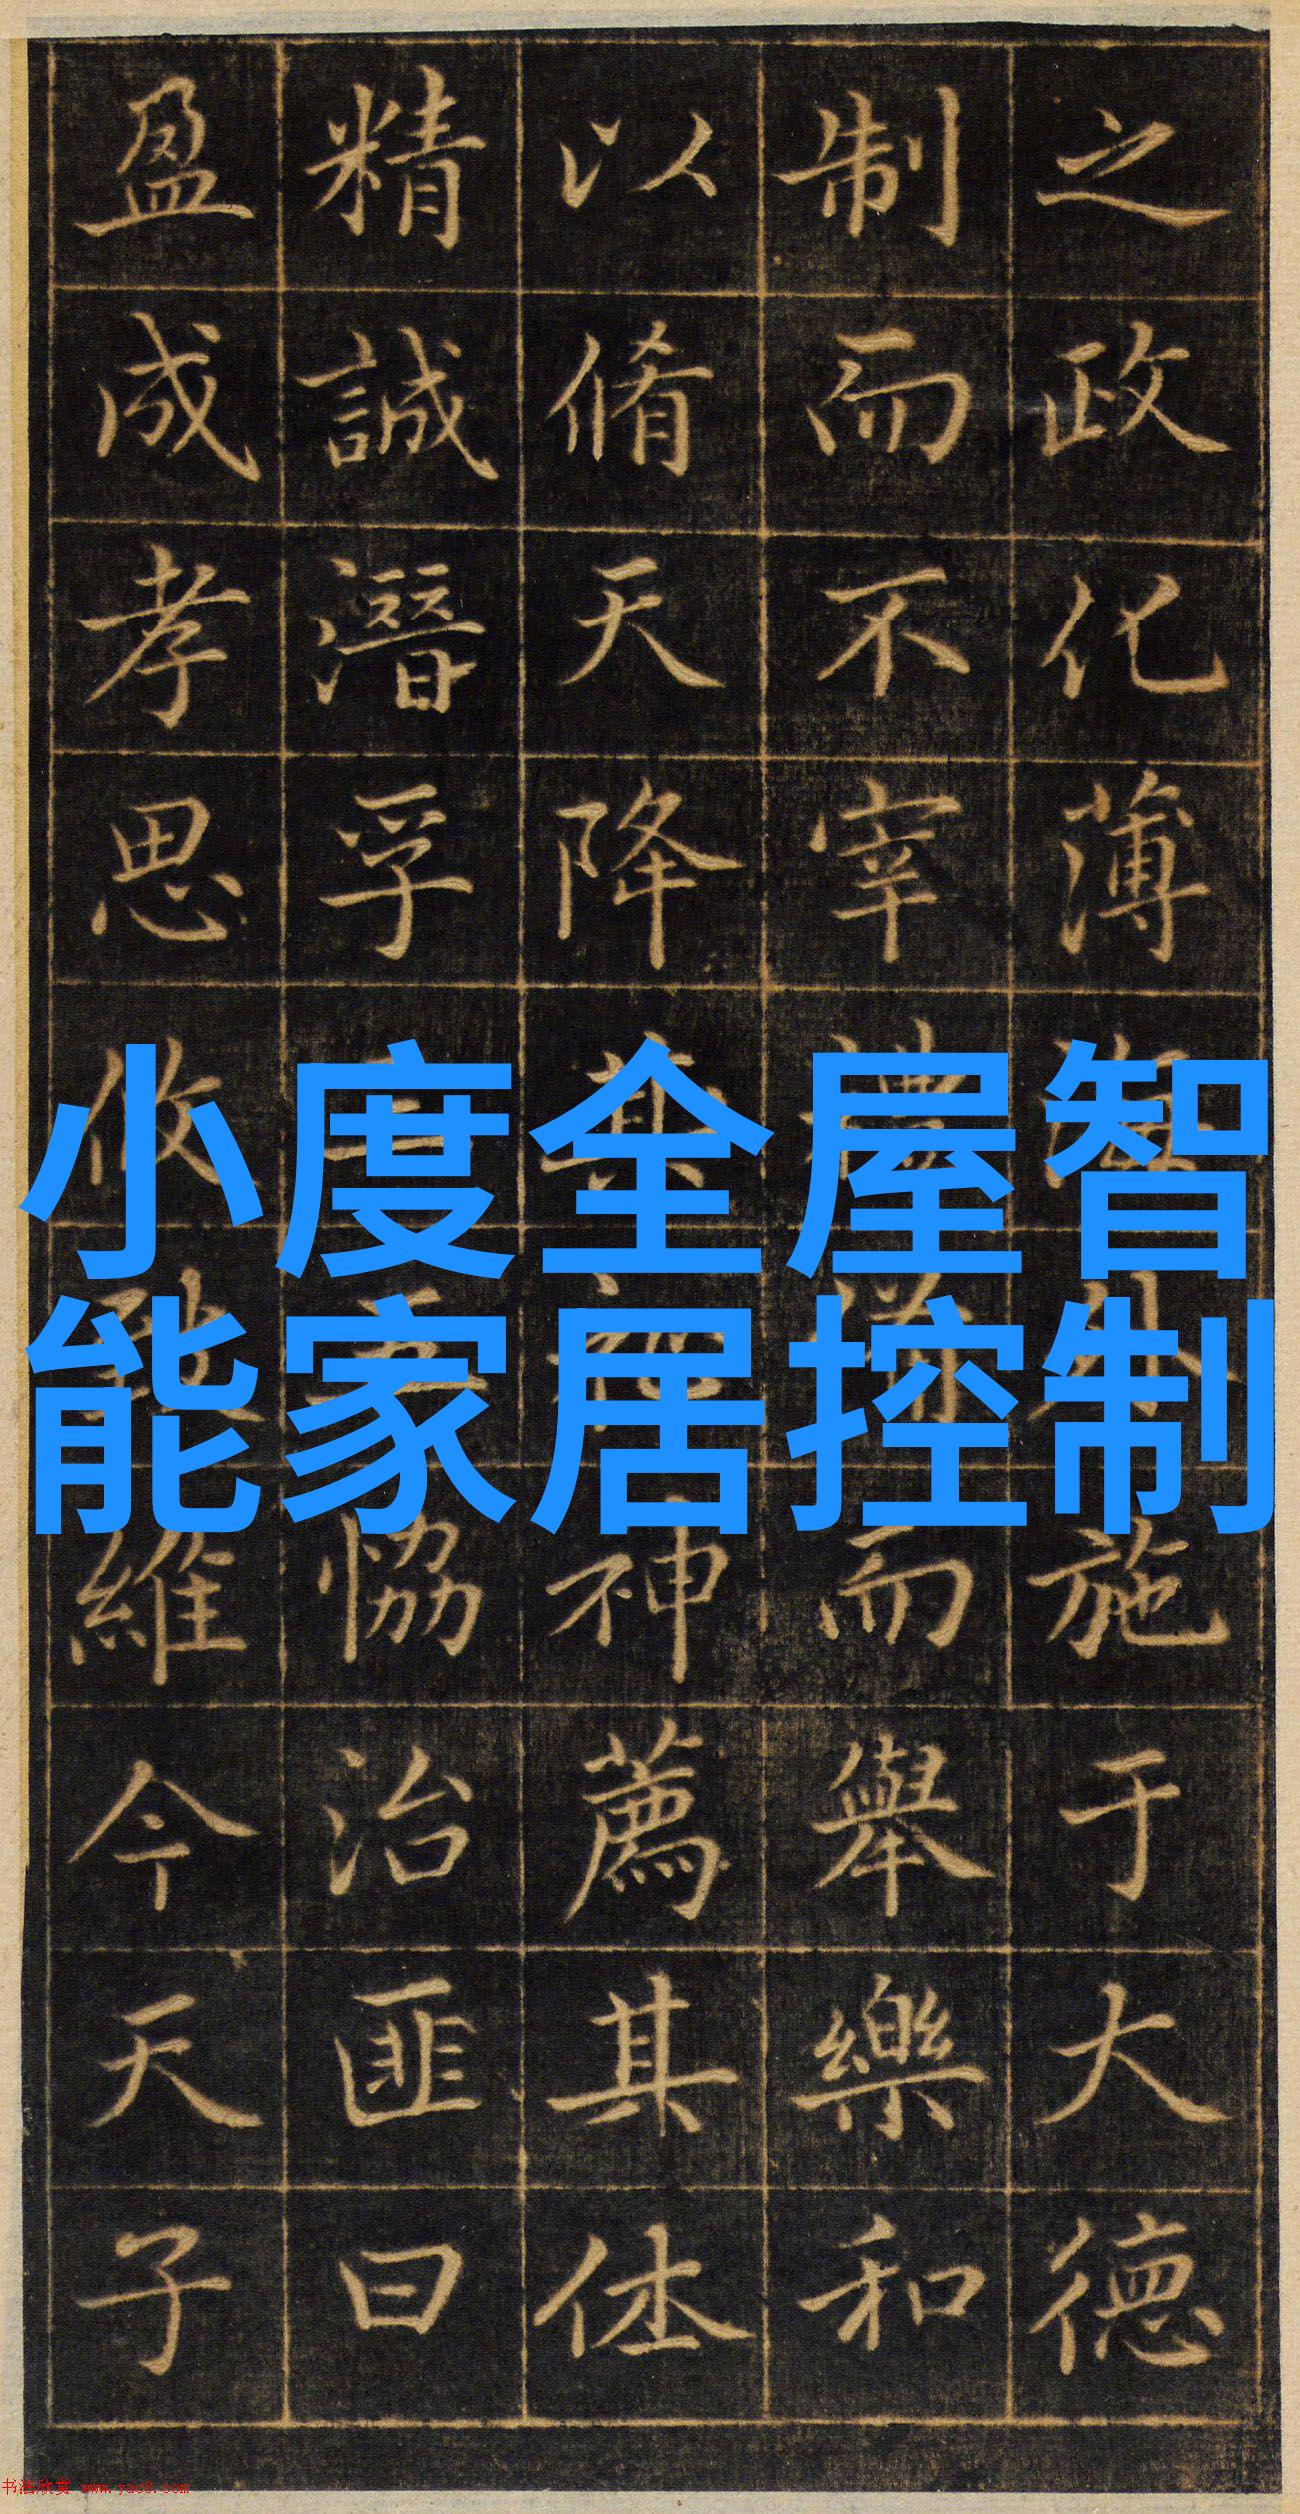 之政化薄外施于大德
制而不宰而舉樂和
以脩天降其神薦其休
精誠潛孚恊治匪曰
盈成孝思攸維今天子
小度全屋智
能家居控制
书法欣赏 www.yac8.com